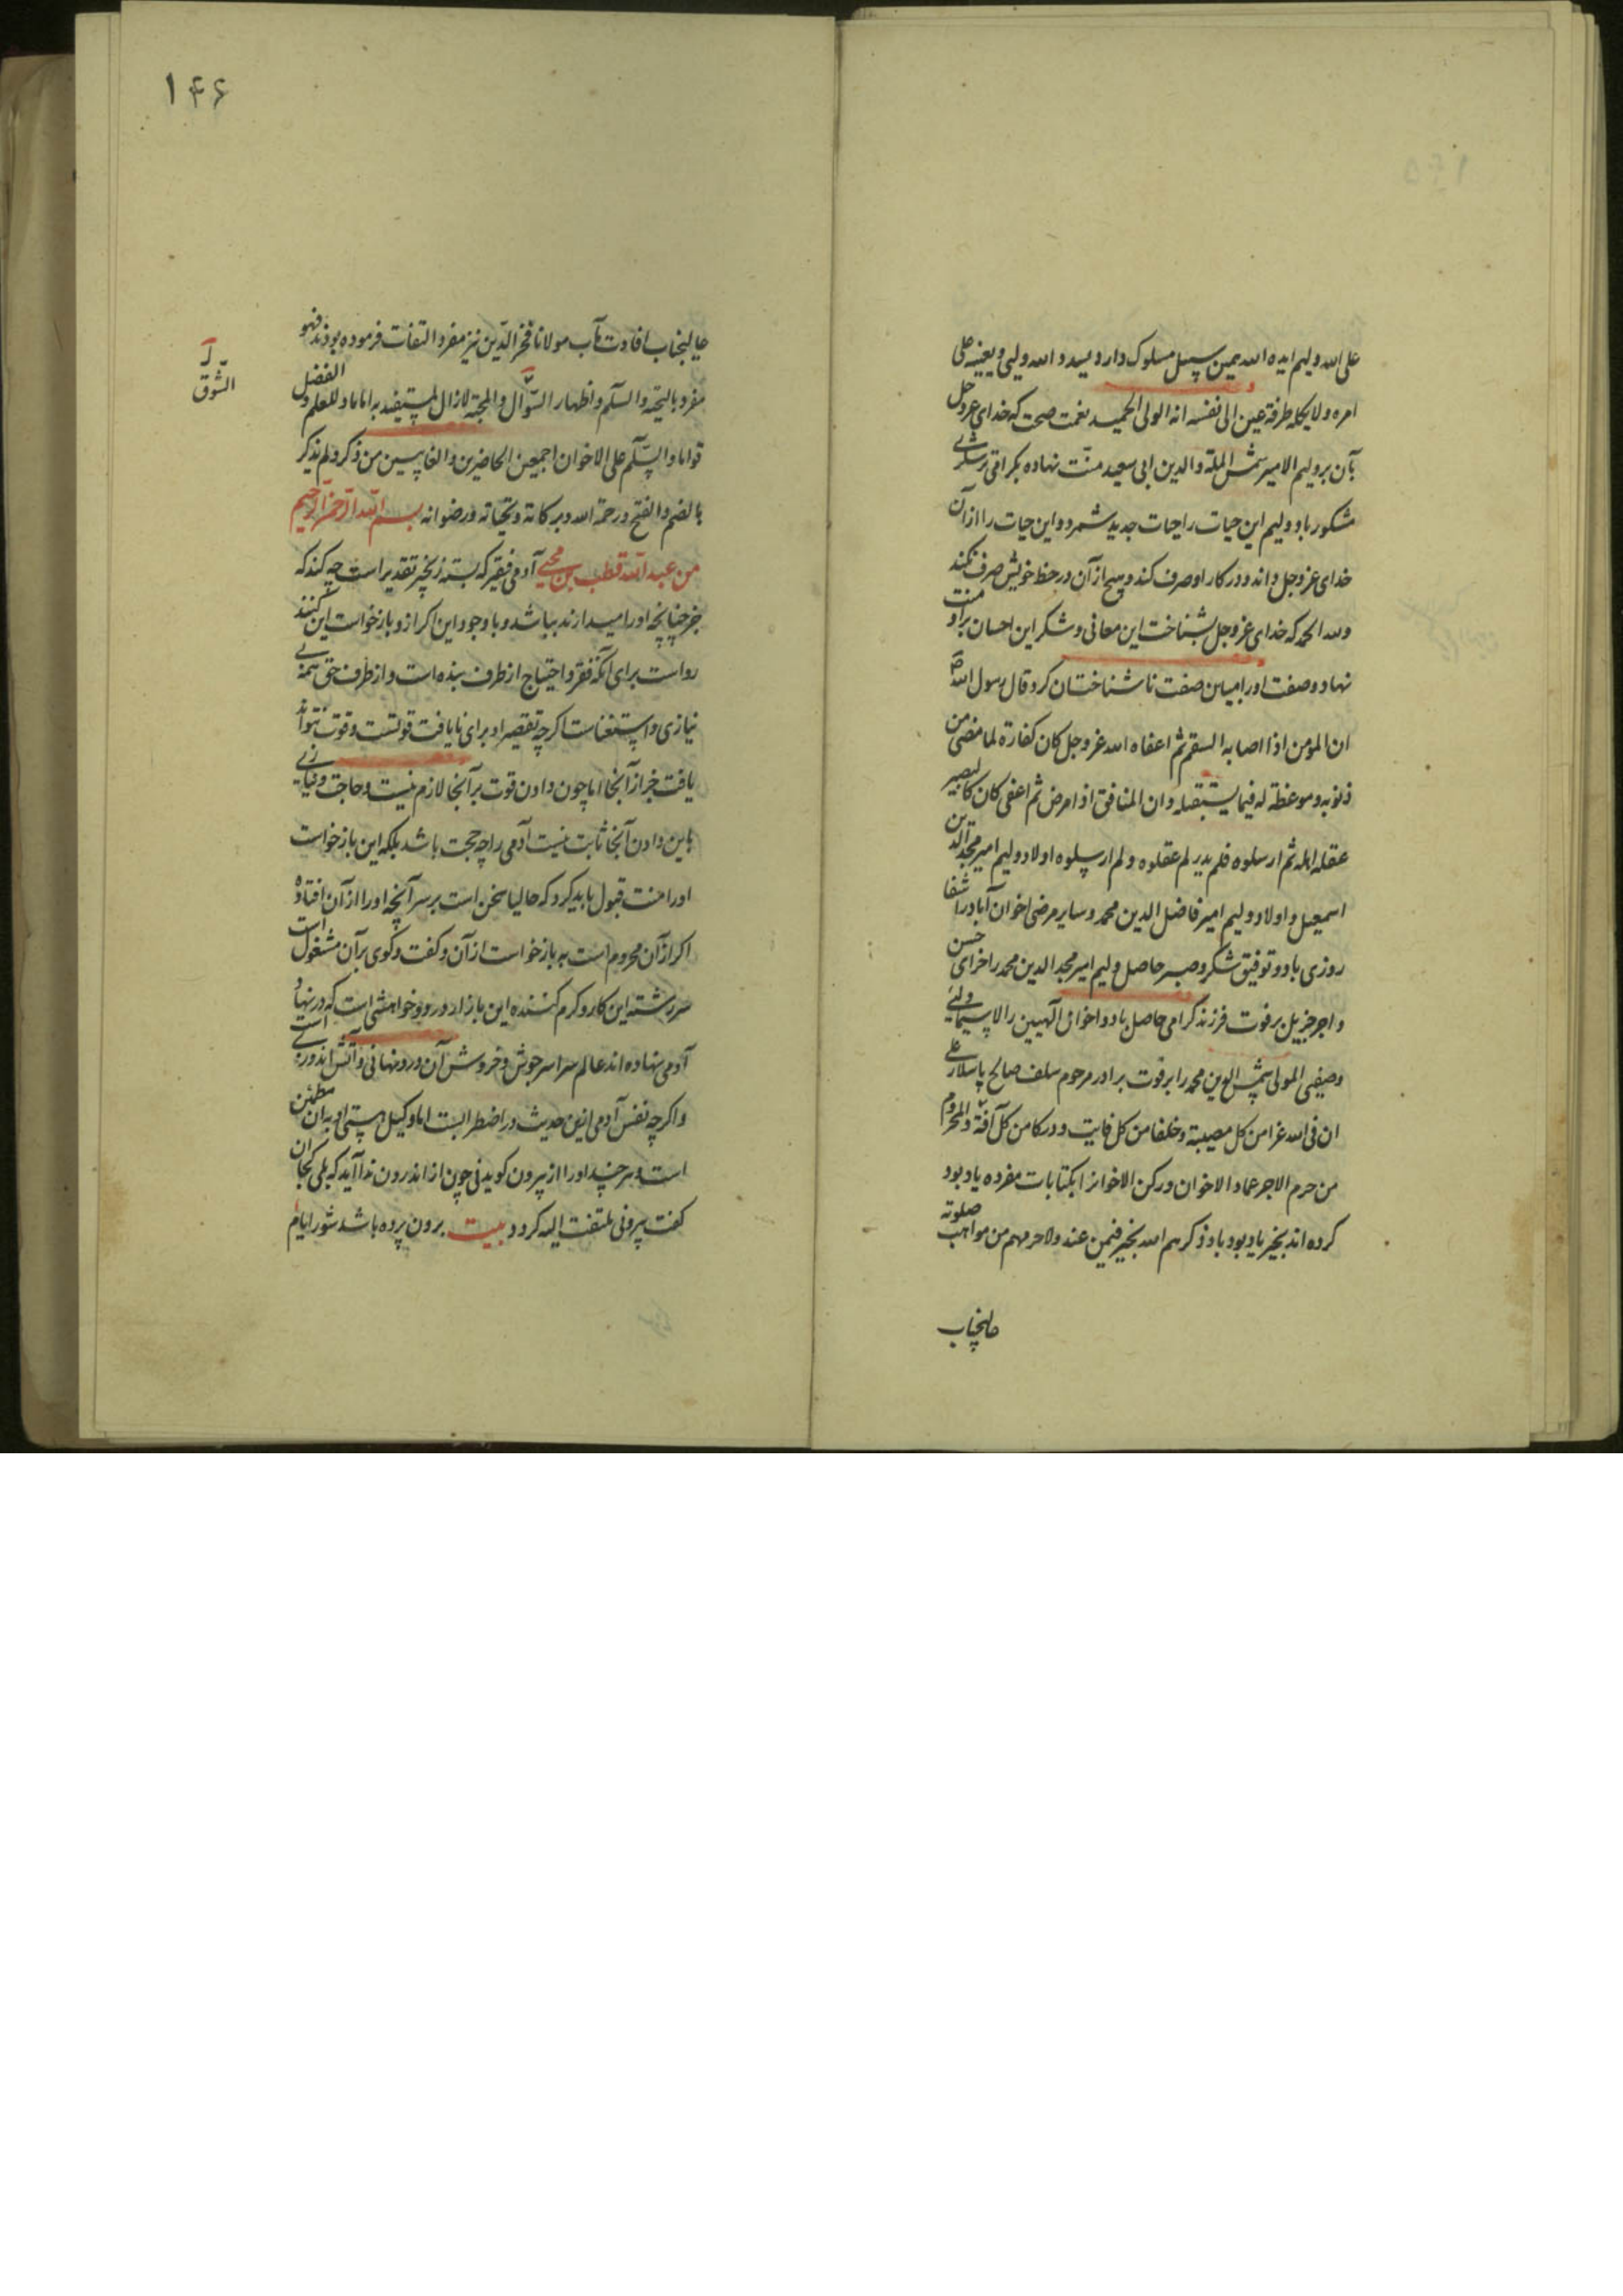 علی الله ولیم ایده الله بمین سبیل مسلوک دارد و الله ولیی و یعینه علی
امره و لا یکله طرفة عین الی نفسه انه الولی الحمید نعمت صحت که خدای عز و جل
بآن بر ولیم الامیر شمس الملة والدین ابی سعید منت نهاده
مشکور باد و ولیم این حیات را حیات جدید شمرد و این حیات را از آن
خدای عز و جل داند و در کار او صرف کند و هیچ از آن در حظ خویش صرف نکند
ولله الحمد که خدای عز و جل بشناخت این معانی و شکر این احسان بر او منت
نهاد و صفت او را مباین صفت ناشناختان کرد و قال رسول الله ص
ان المومن اذا اصابه السقم ثم اعفاه الله عز و جل کان کفارة لما مضی من
ذنوبه و موعظة له فیما یستقبله و ان المنافق اذا مرض ثم اعفی کان کالبعیر
عقله اهله ثم ارسلوه فلم یدر لم عقلوه و لم ارسلوه اولاد ولیم امیر مجد الدین
اسمعیل و اولاد ولیم امیر فاضل الدین محمد و سایر مرضی اخوان آباد را شفا
روزی باد و توفیق شکر و صبر حاصل ولیم امیر مجد الدین محمد را جزای حسن
و اجر جزیل بر فوت فرزند گرامی حاصل باد و اخوان الهیین را لا سیما ولیی
وصفیی المولی شمس الدین محمد را بر فوت برادر مرحوم سلف صالح
ان فی الله عزا من کل مصیبة و خلفا من کل فایت و درکا من کل آفة و المحروم
من حرم الاجر عماد الاخوان و رکن الاخوان را بکتابات مفرده یاد بود
کرده اند بخیر یاد بود باد ذکرهم الله بخیر فیمن عنده و لا حرمهم من مواهب صلوته
عالیجناب
۱۴۶
عالیجناب افادت مآب مولانا فخر الدین نیز مفرد التفات فرموده بودند فهو
مفرد بالتحیة والسلم و اظهار السؤال والمحبة لا زال المستفید به اماما و للعلم و الفضل
قواما والسلم علی الاخوان اجمعین الحاضرین و الغایبین من ذکر و لم یذکر
بالضم و الفتح و رحمة الله و برکاته و تحیاته و رضوانه بسم الله الرحمن الرحیم
من عبد الله قطب بن محیی آدمی فقیر که بسته زنجیر تقدیر است چه کند که
جز چنانچه او را میدارند بباشد و با وجود این اکر از و بازخواست این کنند
رواست برای آنکه فقر و احتیاج از طرف بنده است و از طرف حق همه بی
نیازی و استغناست اکرچه تقصیر او برای نایافت قوتست و قوت نتواند
یافت جز از آنجا اما چون دادن قوت بر آنجا لازم نیست و حاجت و نیازی
باین دادن آنجا ثابت نیست آدمی را چه حجت باشد بلکه این بازخواست
او را منت قبول باید کرد که حالیا سخن است بر سر آنچه او را از آن افتاده
اکر از آن محروم است به بازخواست از آن و کفت و کوی بر آن مشغول است
سررشته این کار و کرم کننده این بازار درد و خواهشی است که در نهاد
آدمی نهاده اند عالم سراسر جوش و خروش آن درد نهانی و آتش اندرونی است
و اکرچه نفس آدمی ازین حدیث در اضطرابست اما وکیل هستی او به آن مطمئن
است و هر چند او را از بیرون کوید نی چون از اندرون ندا آید که بلی کجا آن
کفت بیرونی ملتفت الیه کردد بیت برون پرده باشد شور ایام
الشوق